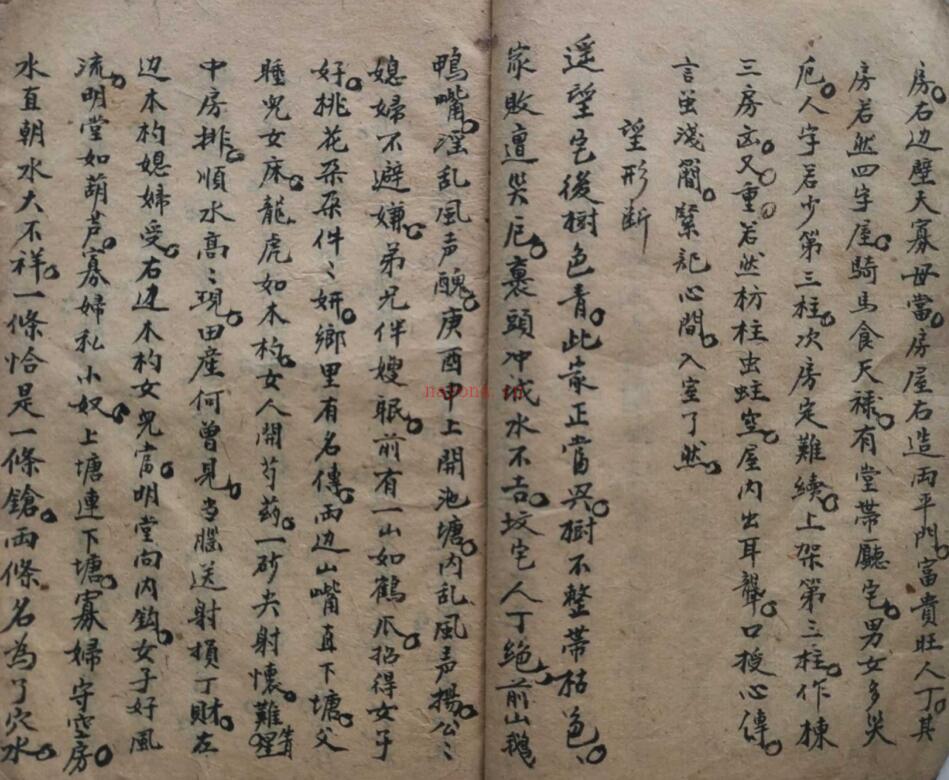 房。右边壁天寡母當。房屋右造両平門。富貴旺人丁。其
房若然四字屋。騎馬食天禄。有堂帯廳宅。男女多災
厄。人字若少第三柱。次房定難續。上架第三柱。作棟
三房凶又重。若然枋柱虫蛀空。屋内出耳聾。口授心傳。
言虽淺簡。緊記心間。入室了然。
望形断
遥望宅後樹色青。此家正當兴。樹不整帯枯色。
家敗遭災厄。裹頭冲㳒水不吉。坟宅人丁絶。前山鵝
鴨嘴。淫乱風声醜。庚酉申上開池塘。内乱風声揚。公〻
媳婦不避嫌。弟兄伴嫂眠。前有一山如鶴爪。招得女子
好。桃花朶朶件〻妍。鄉里有名傳。両边山嘴直下塘。父
睡兒女床。龍虎如木杓。女人開芍药。一砂尖射懷。难
中房排。順水高〻現。田産何曾見。当腦送射損丁財。左
边木杓媳婦受。右边木杓女兒當。明堂向内鈎。女子好風
流。明堂如葫芦。寡婦私小奴。上塘連下塘。寡婦守空房
水直朝水大不祥。一條恰是一條鎗。両條名為了穴水。